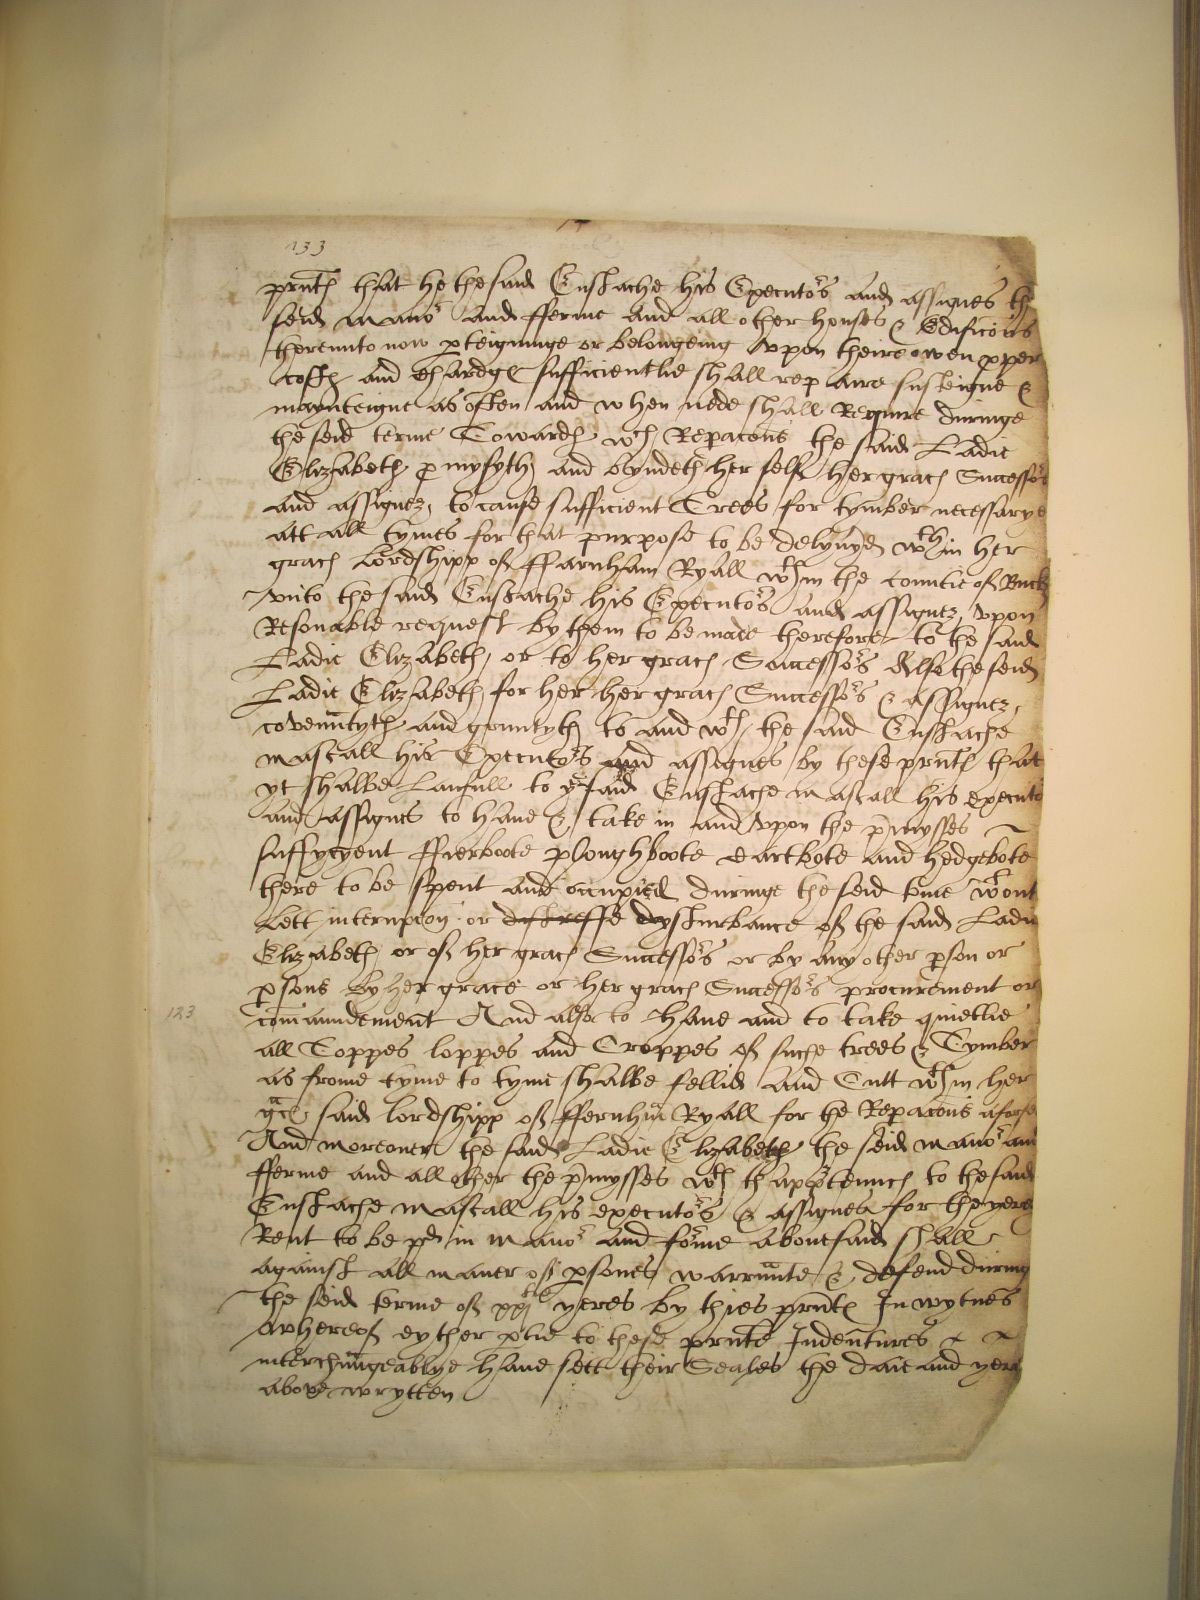 133
prntꝭ that he the said Eustache his Executors and assignes the
seid manor and fferme and all other houses & Edificõns
thereunto now pteigninge or belongeing vpon theire owen pper
costꝭ and chardgꝭ sufficientlie shall repaire susteigne &
maynteigne as often and when nede shall Require duringe
the seid terme Towardꝭ wch Repacõns the said Ladie
Elizabeth pmysyth and byndeth her self her gracꝭ Successors
and assignez to cause sufficient Trees for tymber necessarye
att all tymes for that purpose to be delyuyed wthin her
gracꝭ Lordshipp of ffarnham Ryall wthin the countie of Buckꝭ
vnto the said Eustache his Executors and assignez vpon
Resonable request by them to be made therefore to the said
Ladie Elizabeth or to her gracꝭ Successors Also the seid
Ladie Elizabeth for her her gracꝭ Successors & assignez
covenntyth and grauntyth to and wth the said Eustache
mascall his Executors and assignes by these prntꝭ that
yt shalbe Laufull to ye said Eustache mascall his executors
and Assignes to haue & take in and vpon the pmysses
suffycyent ffierboote ploughboote Cartbote and hedgebote
there to be spent and occupied duringe the seid tme wthout
Lett interupcon or distresse dysturbance of the said Ladie
Elizabeth or of her gracꝭ Successors or by any other pson or
psons by her grace or her gracꝭ Successors procurement or
comaundement And also to haue and to take quietlie
123
all Toppes loppes and Croppes of suche trees & Tymber
as frome tyme to tyme shalbe fellid and Cutt wthin her
gcꝭ said lordshipp of ffernhm Ryall for the Repacõns aforsd
And moreouer the said Ladie Elizabeth the seid manor and
fferme and all other the pmysses wth thapptenncꝭ to the said
Eustache mascall his executors & assignes for the yere
Rent to be pd in manor and forme abouesaid shall
against all maner of psones warrante & defend during
the seid terme of xxjtie yeres by thies prntꝭ In wytnes
whereof eyther ptie to these prnte Indentures
interchangeablye haue sett their Seales the daie and yere
above wrytten